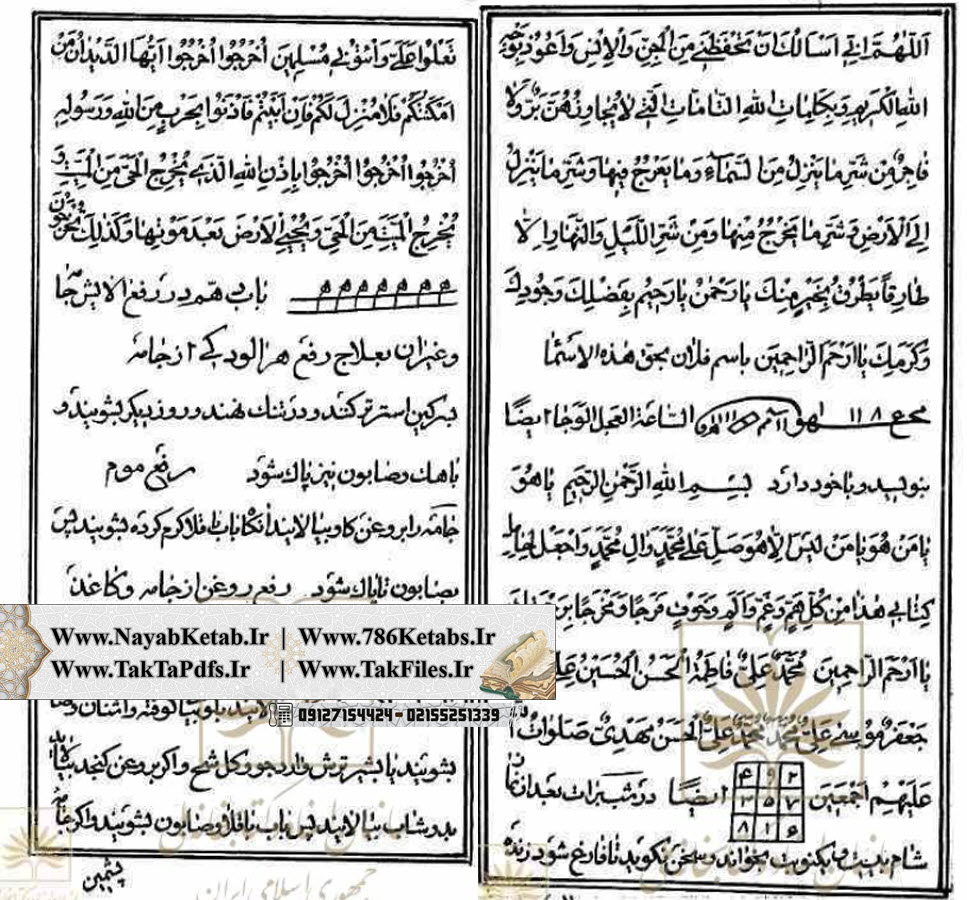 اللهم انی اسالک ان تحفظنی من الجن والانس واعوذ بوجه
الله الکریم وبکلمات الله التامات التی لا یجاوزهن بر ولا
فاجر من شر ما ینزل من السماء وما یعرج فیها وشر ما ینزل
الی الارض وشر ما یخرج منها ومن شر اللیل والنهار الا
طارقا یطرق بخیر منک یا رحمن یا رحیم بفضلک وجودک
وکرمک یا ارحم الراحمین باسم فلان بحق هذه الاسما
الساعة العجل الوحا ایضا
بنویسد و با خود دارد بسم الله الرحمن الرحیم یا هو
یا من هو یا من لیس الا هو صل علی محمد وال محمد واجعل لحامل
کتابی هذا من کل هم وغم والم وخوف فرجا ومخرجا برحمتک
یا ارحم الراحمین محمد علی فاطمة الحسن الحسین علی
جعفر موسی علی محمد علی الحسن مهدی صلوات
علیهم اجمعین ایضا در شب برات بعد از نماز
۴ ۹ ۲
۳ ۵ ۷
۸ ۱ ۶
شام بیست و یکنوبت بخواند و سخن نکوید تا فارغ شود
تعلوا علی واتونی مسلمین اخرجوا اخرجوا ایتها الدیدان من
امکنتکم فلا منزل لکم فان ابیتم فاذنوا بحرب من الله ورسوله
اخرجوا اخرجوا اخرجوا باذن الله الذی یخرج الحی من المیت و
مخرج المیت من الحی ویحیی الارض بعد موتها وکذلک تخرجون
باب دهم در رفع الایش جامه
وغیران بعلاج رفع هر الودکی از جامه
سرکین استر تر کند و در تنک نهند و روز دیکر بشویند و
باهک و صابون نیز پاک شود رفع موم
جامه را بروغن کاو بیالایند انکاه باب باقلا کرم کرده بشویند پس
بصابون تا پاک شود رفع روغن از جامه و کاغذ
Www.NayabKetab.Ir | Www.786Ketabs.Ir
Www.TakTaPdfs.Ir | Www.TakFiles.Ir
09127154424 - 02155251339
بشویند یا بشیر ترش و ارد جو و کل سرخ و اکر بروغن کنجد
بدوشاب بیالایند پس باب باقلا و صابون بشویند و اکر
پشمین
جمهوری اسلامی ایران